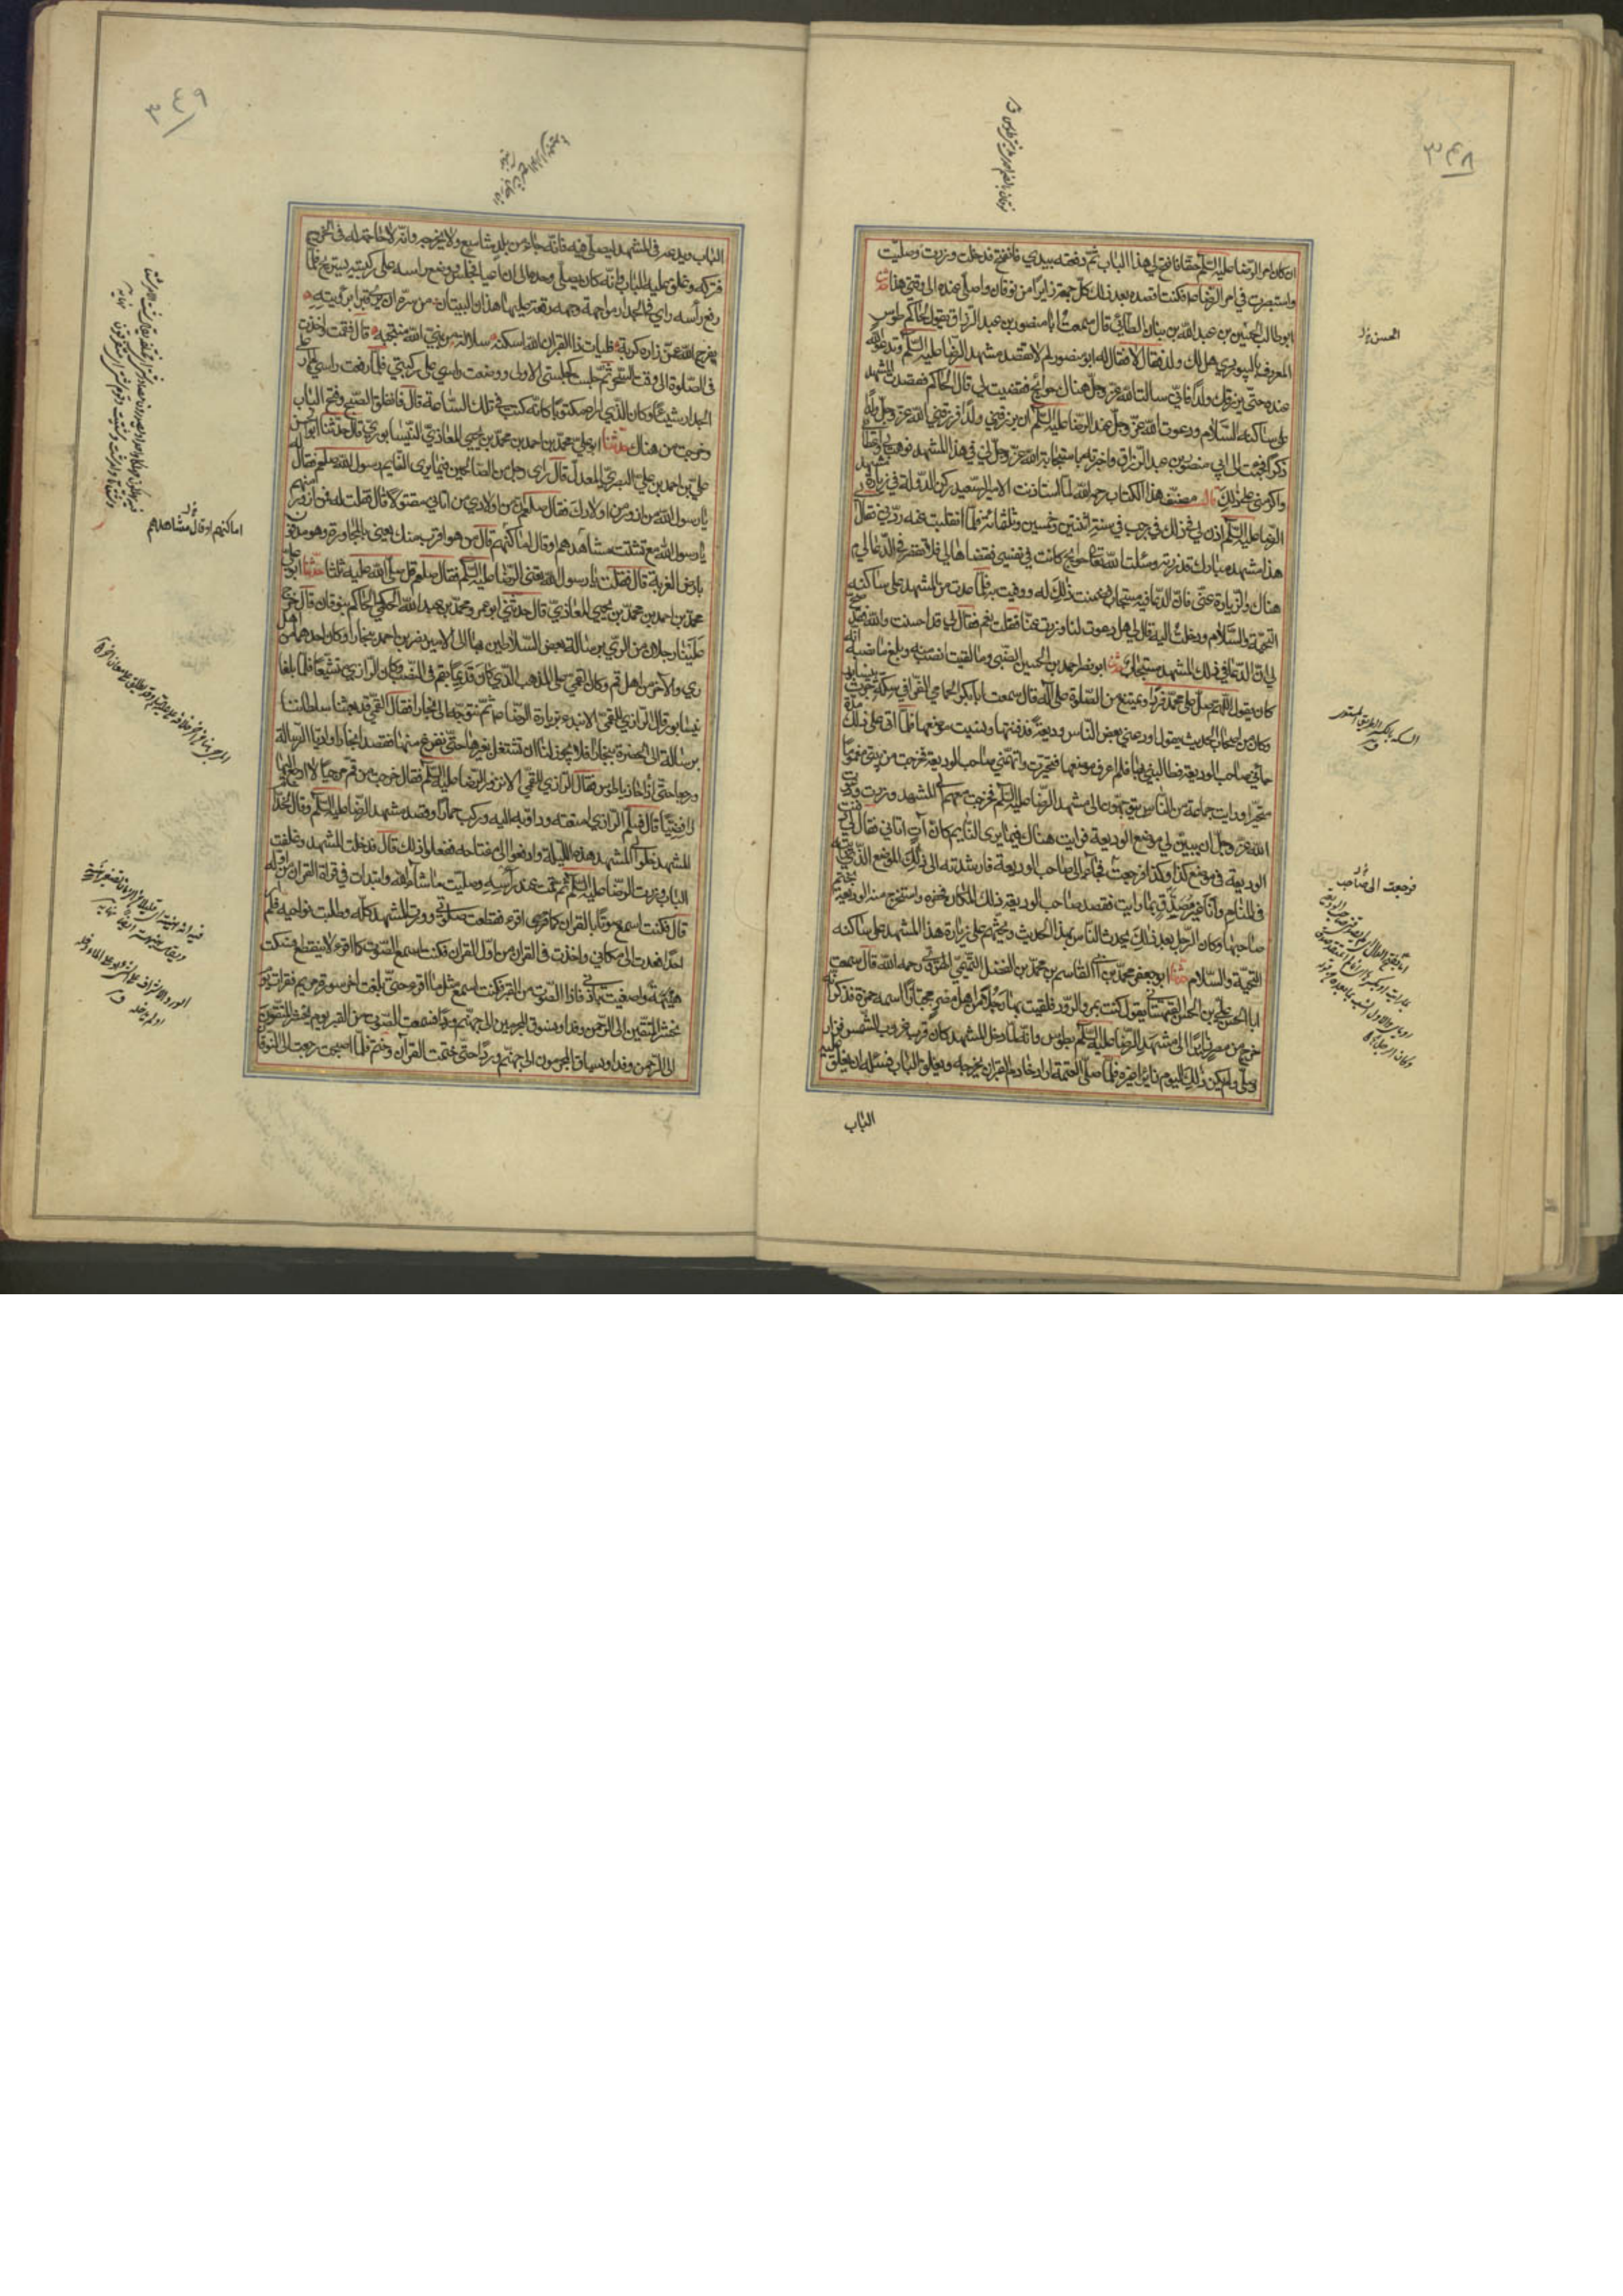 ٣٤٨
ان كان امر الرضا عليه السلم حقا فافتح لي هذا الباب ثم دفعته بيدي فانفتح فدخلت وزرت وصليت
واستبصرت في امر الرضا ع فكنت اقصده بعد ذلك كل جمعة زايرا من نوقان واصلي عنده الى وقتي هذا حدثنا
ابو طالب الحسين بن عبد الله بن بنان الطائي قال سمعت ابا منصور بن عبد الرزاق يقول للحاكم طوس
المعروف بالبيوردي هل لك ولد فقال لا فقال له ابو منصور لم لا تقصد مشهد الرضا عليه السلم وتدعو الله
عنده حتى يرزقك ولدا فاني سالت الله عز وجل هناك حوايج فقضيت لي قال الحاكم فقصدت المشهد
على ساكنه السلام ودعوت الله عز وجل عند الرضا عليه السلم ان يرزقني ولدا فرزقني الله عز وجل ولدا
ذكرا فجئت الى ابي منصور بن عبد الرزاق واخبرته باستجابة الله عز وجل لي في هذا المشهد فوهب لي واعطاني
واكرمني على ذلك قال مصنف هذا الكتاب رحمه الله لما استاذنت الامير السعيد ركن الدولة في زيارة مشهد
الرضا عليه السلم اذن لي في ذلك في رجب في سنة اثنتين وخمسين وثلثمائة فلما انقلبت عنه ردني فقال لي
هذا مشهد مبارك قد زرته وسئلت الله تعالى حوايج كانت في نفسي فقضاها لي فلا تقصر في الدعا لي
هناك والزيارة عني فان الدعا فيه مستجاب فضمنت ذلك له ووفيت به فلما عدت من المشهد على ساكنه
التحية والسلام ودخلت اليه قال لي هل دعوت لنا وزرت عنا فقلت نعم فقال لي قد احسنت والله قد صح
لي ان الدعا في ذلك المشهد مستجاب حدثنا ابو نصر احمد بن الحسين الضبي وما لقيت انصب منه وبلغ من نصبه انه
كان يقول اللهم صل على محمد فردا ويمتنع من الصلوة على آله قال سمعت ابا بكر الحمامي الفرا في سكة حرب نيسابور
وكان من اصحاب الحديث يقول اودعني بعض الناس وديعة فدفنتها ونسيت موضعها فلما اتى على ذلك مدة
جاءني صاحب الوديعة يطالبني بها فلم اعرف موضعها فتحيرت واتهمني صاحب الوديعة فخرجت من بيتي مغموما
متحيرا ورايت جماعة من الناس يتوجهون الى مشهد الرضا عليه السلم فخرجت معهم الى المشهد وزرت ودعوت
الله عز وجل ان يبين لي موضع الوديعة فرايت هناك فيما يرى النايم كان آت اتاني فقال لي دفنت
الوديعة في موضع كذا وكذا فرجعت فجاء بي الى صاحب الوديعة فارشدته الى ذلك الموضع الذي رايته
في المنام وانا غير مصدق بما رايت فقصد صاحب الوديعة ذلك المكان فحفره واستخرج منه الوديعة بختم
صاحبها وكان الرجل بعد ذلك يحدث الناس بهذا الحديث ويحثهم على زيارة هذا المشهد على ساكنه
التحية والسلام حدثنا ابو جعفر محمد بن ابي القاسم بن محمد بن الفضل التميمي الهروي رحمه الله قال سمعت
ابا الحسن علي بن الحسن القهستاني يقول كنت بمرو الرود فلقيت بها رجلا من اهل مصر مجتازا اسمه حمزة فذكر انه
خرج من مصر زائرا الى مشهد الرضا عليه السلم بطوس وانه لما دخل المشهد كان قرب غروب الشمس فزار
وصلى ولم يكن ذلك اليوم زائر غيره فلما صلى العتمة اراد خادم القبر ان يخرجه ويغلق الباب فسئله ان يغلق عليه
الباب
الحسن ل
فرجعت الى صاحب
٣٤٩
الباب ويدعه في المشهد ليصلي فيه فانه جاء من بلد شاسع ولا يخرجه وانه لا حاجة له في الخروج
فتركه وغلق عليه الباب وانه كان يصلي وحده الى ان اعيا فجلس ووضع راسه على ركبتيه يستريح فلما
رفع راسه راى في الجدار مواجهة وجهه رقعة عليها هذان البيتان من سره ان يرى قبرا برؤيته
يفرج الله عمن زاره كربه فليات ذا القبر ان الله اسكنه سلالة من نبي الله منتجبه قال فقمت واخذت
في الصلوة الى وقت السحر ثم جلست كجلستي الاولى ووضعت راسي على ركبتي فلما رفعت راسي لم ار على
الجدار شيئا وكان الذي اراه مكتوبا كانه كتب في تلك الساعة قال فانفلق الصبح وفتح الباب
وخرجت من هناك حدثنا ابو علي محمد بن احمد بن محمد بن يحيى المعاذي النيسابوري قال حدثنا ابو الحسن
علي بن احمد بن علي البصري المعدل قال راى رجل من الصالحين فيما يرى النايم رسول الله صلعم فقال له
يا رسول الله من ازور من اولادك فقال صلعم ان من اولادي من اتاني مسموما وان من اولادي من اتاني مقتولا قال فقلت له فمن ازور منهم
يا رسول الله مع تشتت مشاهدهم او قال اماكنهم قال من هو اقرب منك يعني بالمجاورة وهو مدفون
بارض الغربة قال فقلت يا رسول الله تعني الرضا عليه السلم فقال صلعم قل صلى الله عليه ثلثا حدثنا ابو علي
محمد بن احمد بن محمد بن يحيى المعاذي قال حدثني ابو عمرو محمد بن عبد الله الحكمي الحاكم بنوقان قال خرج
علينا رجلان من الري برسالة بعض السلاطين بها الى الامير نصر بن احمد ببخارا وكان احدهما من اهل
ري والآخر من اهل قم وكان القمي على المذهب الذي كان قديما بقم في النصب وكان الرازي متشيعا فلما بلغا
نيسابور قال الرازي للقمي الا نبدء بزيارة الرضا ع ثم نتوجه الى بخارا فقال القمي قد بعثنا سلطاننا
برسالة الى الحضرة ببخارا فلا يجوز لنا ان نشتغل بغيرها حتى نفرغ منها فقصدا بخارا واديا الرسالة
ورجعا حتى اذا حاذيا طوس فقال الرازي للقمي الا نزور الرضا عليه السلم فقال خرجت من قم مرجيا لا ارجع اليها
رافضيا قال فسلم الرازي امتعته ودوابه اليه وركب حمارا وقصد مشهد الرضا عليه السلم وقال لخدام
المشهد خلوا لي المشهد هذه الليلة وادفعوا الي مفتاحه ففعلوا ذلك قال فدخلت المشهد وغلقت
الباب وزرت الرضا عليه السلم ثم قمت عند راسه وصليت ما شاء الله وابتدات في قراءة القران من اوله
قال فكنت اسمع صوتا بالقران كما اقرء فقطعت صلوتي وزرت المشهد كله وطلبت نواحيه فلم ار
احدا فعدت الى مكاني واخذت في القران من اول القران فكنت اسمع الصوت كما اقرء لا ينقطع فسكت
هنيهة واصغيت باذني فاذا الصوت من القبر فكنت اسمع مثل ما اقرء حتى بلغت آخر سورة مريم فقرات يوم
نحشر المتقين الى الرحمن وفدا ونسوق المجرمين الى جهنم وردا فسمعت الصوت من القبر يوم يحشر المتقون
الى الرحمن وفدا ويساق المجرمون الى جهنم وردا حتى ختمت القرآن وختم فلما اصبحت رجعت الى نوقان
اماكنهم او قال مشاهدهم